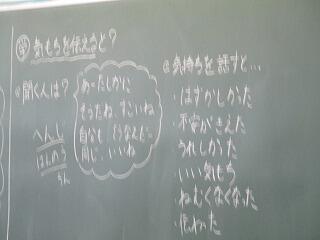 ㋕気もちを伝えると?
・聞く人は?
へんじ
はんのう
あーたしかに
そうだね、すごいね
自分も そうなんだ
同じ、いいね
・気持ちを話すと…
・はずかしかった
・不安がきえた
・うれしかった
・いい気もち
・ねむくなくなった
・伝わった